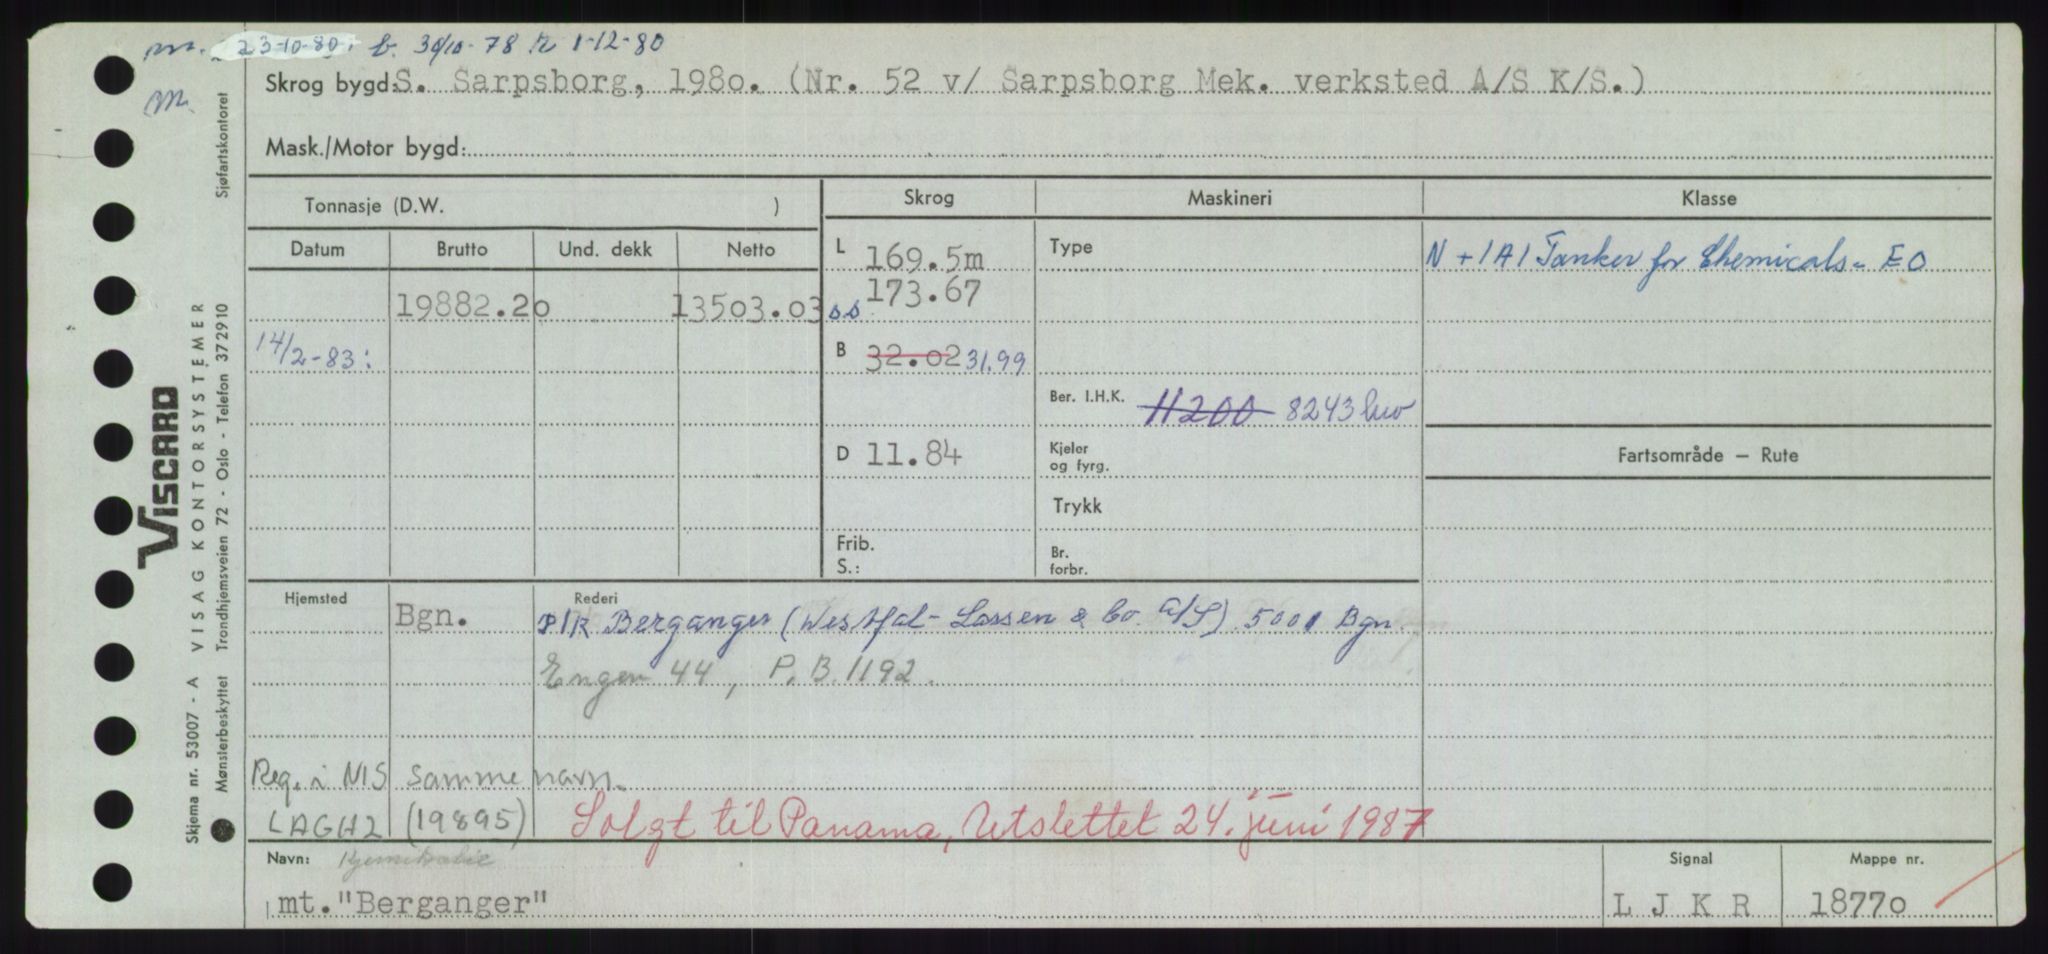 m. 23-10-80. b. 30/10-78 R 1-12-80
m.
Skrog bygd: S. Sarpsborg, 1980. (Nr. 52 v/ Sarpsborg Mek. verksted A/S K/S.)
Mask./Motor bygd:
Sjøfartskontoret
Tonnasje (D.W. )
Skrog
Maskineri
Klasse
Datum
Brutto
Und. dekk
Netto
L 169.5m
Type
N +1A1 Tanker for Chemicals - EO
19882.20
13503.03
s.s 173.67
14/2-83:
B 32.02 31.99
Ber. I.H.K. 11200 8243 hw
D 11.84
Kjeler
og fyrg.
Fartsområde – Rute
Trykk
Frib.
S.:
Br.
forbr.
Hjemsted
Bgn.
Rederi
P/R Berganger (Westfal-Larsen & Co. A/S) 5001 Bgn.
Engen 44, P.B. 1192.
Reg. i NIS samme navn.
LAGH2 (19895) Solgt til Panama, Utslettet 24. juni 1987
Navn: Kjemikalie
mt. "Berganger"
Signal
L J K R
Mappe nr.
18770
VISCARD
Skjema nr. 53007 - A VISAG KONTORSYSTEMER
Mønsterbeskyttet Trondhjemsveien 72 - Oslo - Telefon 372910